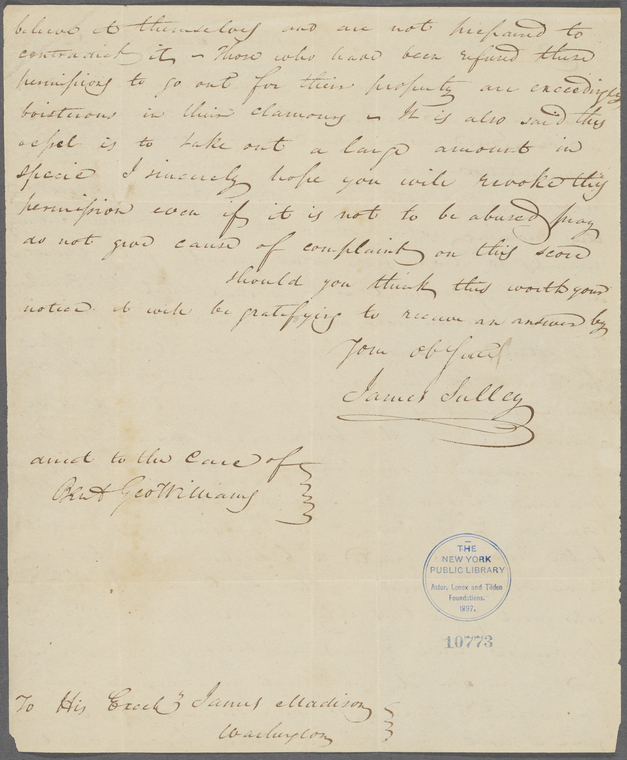 believe it themselves and are not prepared to
contradict it – Those who have been refused these
permissions to go out for their property are exceedingly
boisterous in their clamours – It is also said this
vessel is to take out a large amount in
specie I sincerely hope you will revoke this
permission even if it is not to be abused pray
do not give cause of complaint on this score
should you think this worth your
notice it will be gratifying to receive an answer by
Your ob
James Sulley
to the Care of
Geo Williams
THE
NEW YORK
PUBLIC LIBRARY
Astor, Lenox and Tilden
Foundations.
1897.
10773
To His Excely James Madison
Washington